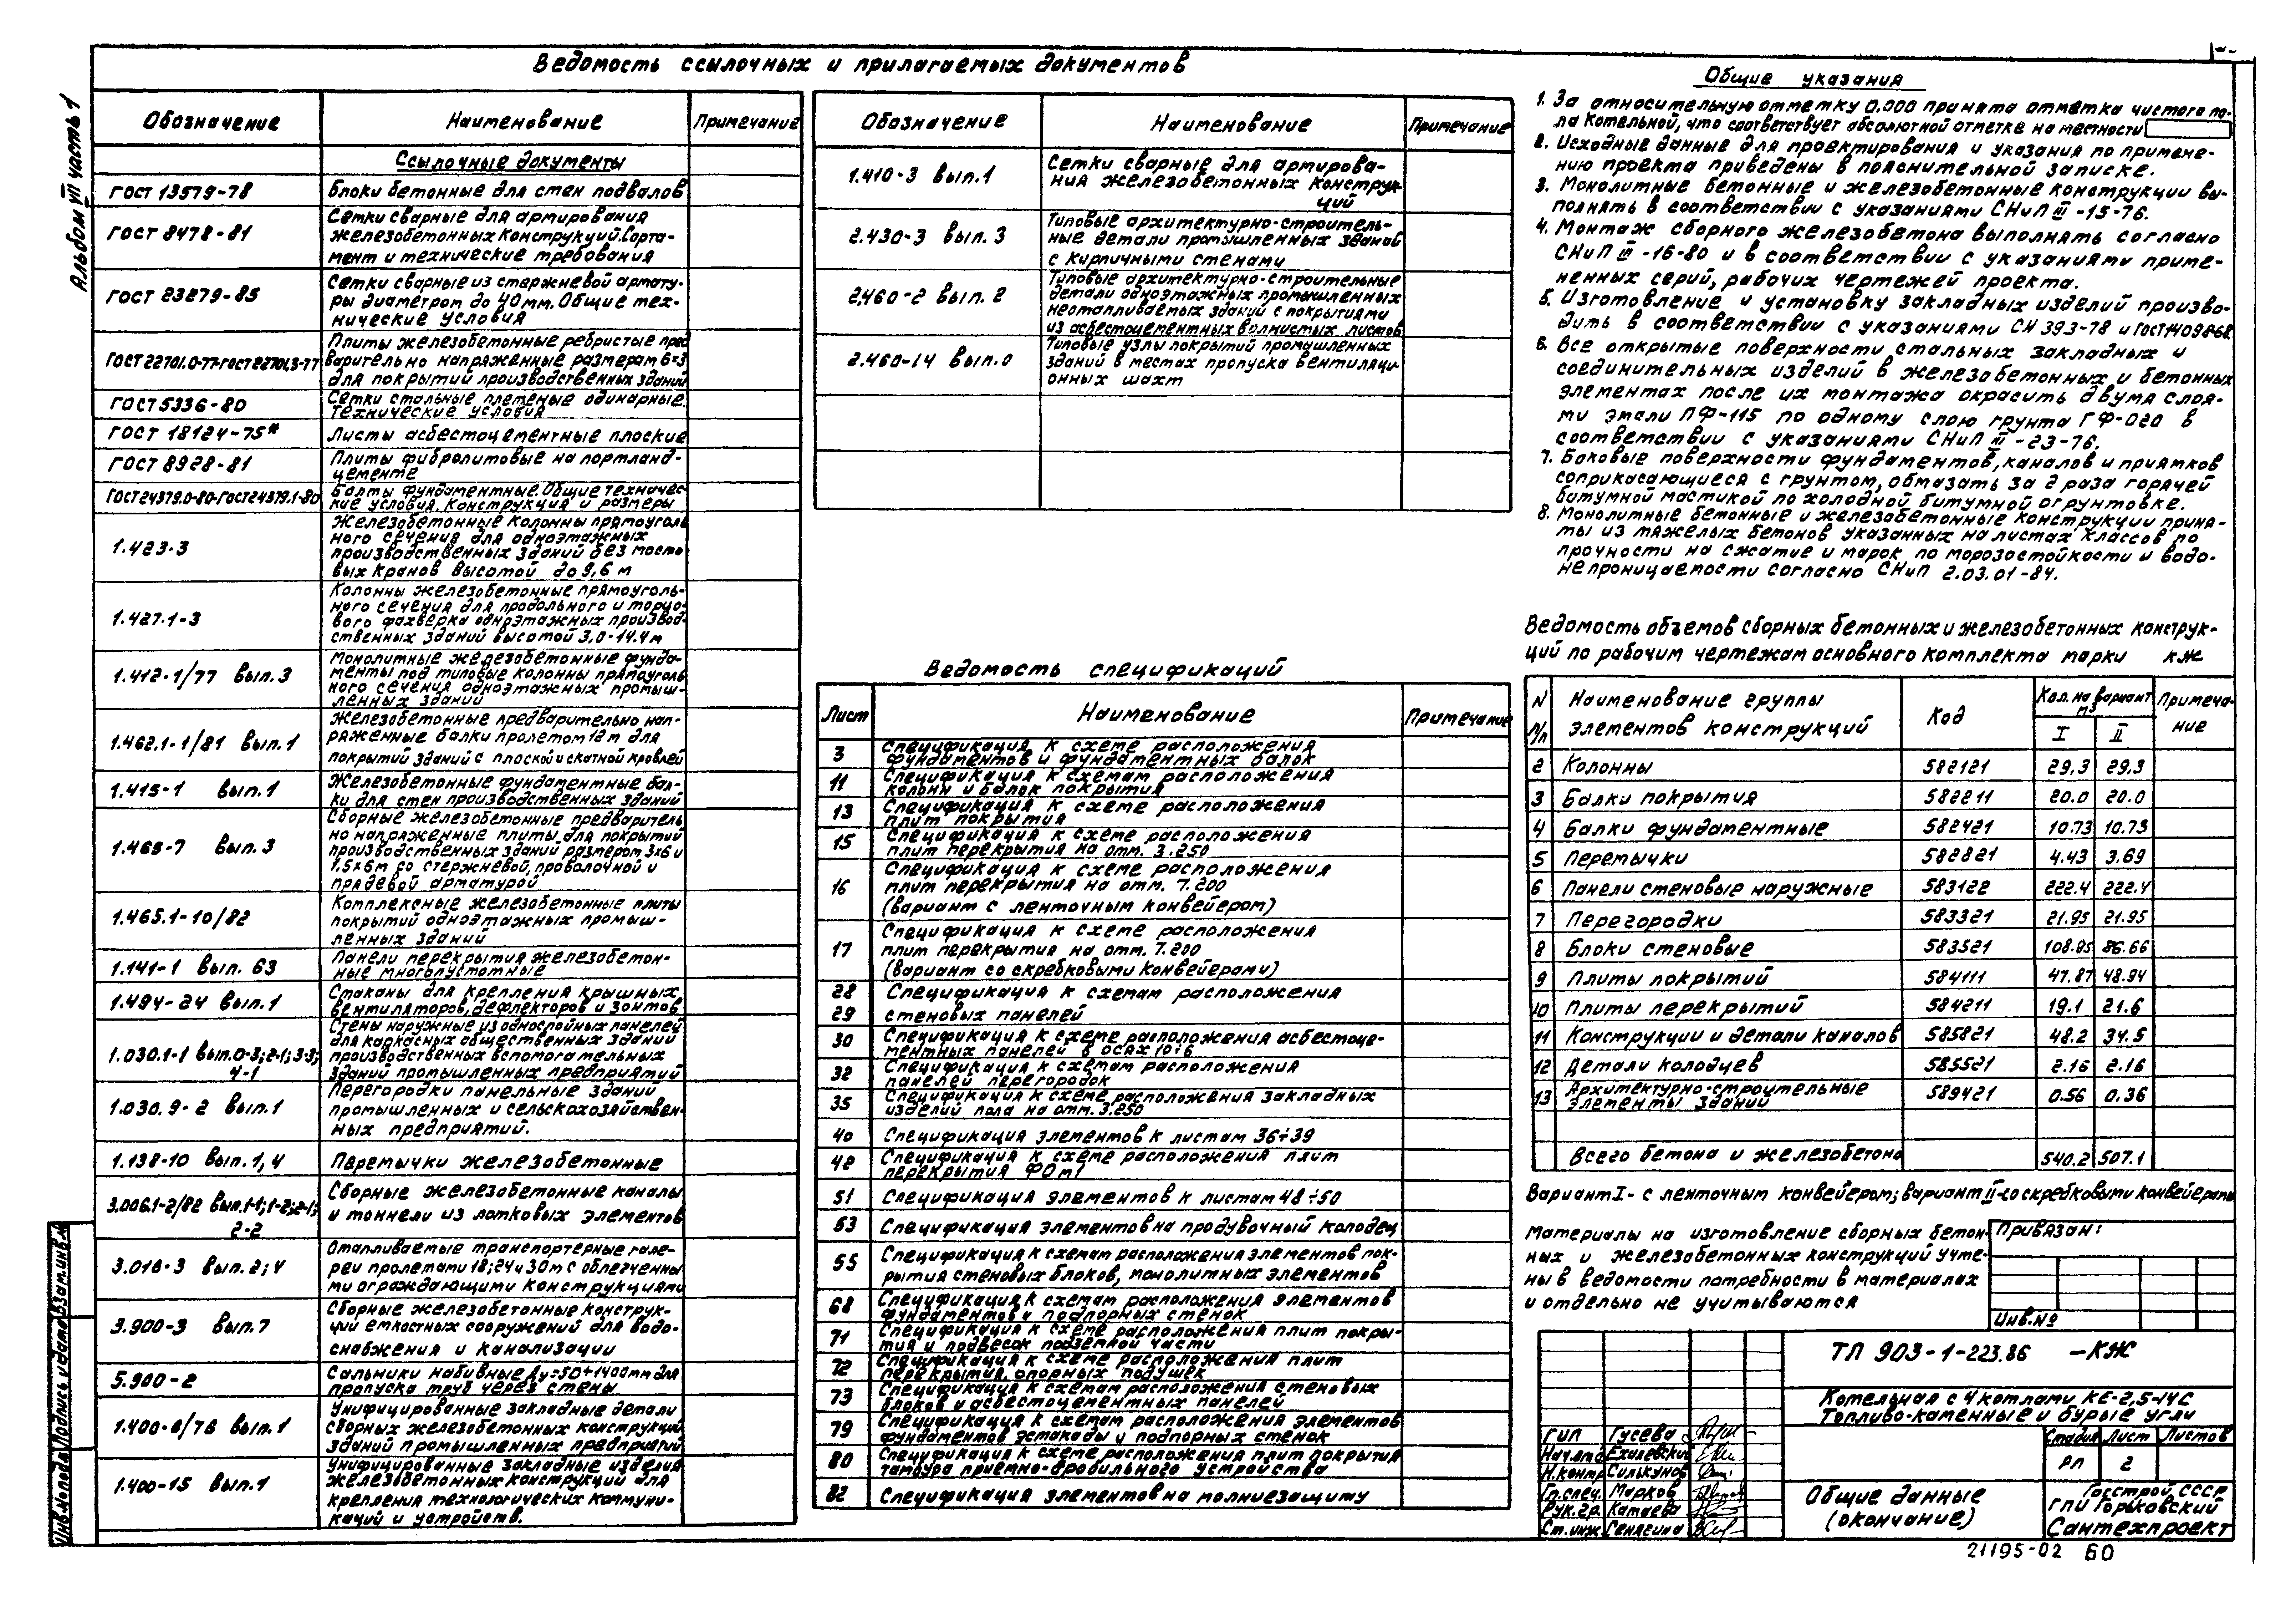 Альбом VII часть 1
Ведомость ссылочных и прилагаемых документов
Обозначение Наименование Примечание
Ссылочные документы
ГОСТ 13579-78 Блоки бетонные для стен подвалов
ГОСТ 8478-81 Сетки сварные для армирования
железобетонных конструкций. Сорта-
мент и технические требования
ГОСТ 23279-85 Сетки сварные из стержневой армату-
ры диаметром до 40мм. Общие тех-
нические условия
ГОСТ 22701.0-77-ГОСТ 22701.3-77 Плиты железобетонные ребристые пред
варительно напряженные размерам 6×3
для покрытий производственных зданий
ГОСТ 5336-80 Сетки стальные плетеные одинарные.
Технические условия
ГОСТ 18124-75* Листы асбестоцементные плоские
ГОСТ 8928-81 Плиты фибролитовые на портланд-
цементе
ГОСТ24379.0-80-ГОСТ24379.1-80 Болты фундаментные. Общие техничес-
кие условия. Конструкция и размеры
1.423-3 Железобетонные колонны прямоуголь
ного сечения для одноэтажных
производственных зданий без мосто
вых кранов высотой до 9,6 м
1.427.1-3 Колонны железобетонные прямоуголь-
ного сечения для продольного и торцо-
вого фахверка одноэтажных производ-
ственных зданий высотой 3,0-14.4м
1.412-1/77 вып. 3 Монолитные железобетонные фунда-
менты под типовые колонны прямоуголь
ного сечения одноэтажных промыш-
ленных зданий
1.462.1-1/81 вып. 1 Железобетонные предварительно нап-
ряженные балки пролетом 12м для
покрытий зданий с плоской и скатной кровлей
1.415-1 вып. 1 Железобетонные фундаментные бал-
ки для стен производственных зданий
1.465-7 вып. 3 Сборные железобетонные предваритель
но напряженные плиты для покрытий
производственных зданий размером 3×6 и
1,5×6м со стержневой, проволочной и
прядевой арматурой
1.465.1-10/82 Комплексные железобетонные плиты
покрытий одноэтажных промыш-
ленных зданий
1.141-1 вып. 63 Панели перекрытия железобетон-
ные многопустотные
1.494-24 вып. 1 Стаканы для крепления крышных
вентиляторов, дефлекторов и зонтов
1.030.1-1 вып.0-3; 2-1; 3-3; Стены наружные из однослойных панелей
для каркасных общественных зданий
производственных вспомогательных
4-1 зданий промышленных предприятий
1.030.9-2 вып.1 Перегородки панельные зданий
промышленных и сельскохозяйствен-
ных предприятий.
1.138-10 вып. 1, 4 Перемычки железобетонные
3.006.1-2/82 вып.1-1; 1-2; 2-1; Сборные железобетонные каналы
2-2 и тоннели из лотковых элементов
3.016-3 вып. 2; 4 Отапливаемые транспортерные гале-
реи пролетами 18; 24 и 30м с облегченны
ми ограждающими конструкциями
3.900-3 вып. 7 Сборные железобетонные конструк-
ций емкостных сооружений для водо-
снабжения и канализации
5.900-2 Сальники набивные Ду=50÷1400мм для
пропуска труб через стены
1.400-6/76 вып. 1 Унифицированные закладные детали
сборных железобетонных конструкций
зданий промышленных предприятий
1.400-15 вып.1 Унифицированные закладные изделия
железобетонных конструкций для
крепления технологических коммуни-
каций и устройств.
Обозначение Наименование Примечание
1.410-3 вып.1 Сетки сварные для армирова-
ния железобетонных конструк-
ций
2.430-3 вып. 3 Типовые архитектурно-строитель-
ные детали промышленных зданий
с кирпичными стенами
2.460-2 вып. 2 Типовые архитектурно-строительные
детали одноэтажных промышленных
неотапливаемых зданий с покрытиями
из асбестоцементных волнистых листов
2.460-14 вып.0 Типовые узлы покрытий промышленных
зданий в местах пропуска вентиляци-
онных шахт
Ведомость спецификаций
Лист Наименование Примечание
3 Спецификация к схеме расположения
фундаментов и фундаментных балок
11 Спецификация к схемам расположения
колонн и балок покрытия
13 Спецификация к схеме расположения
плит покрытия
15 Спецификация к схеме расположения
плит перекрытия на отм. 3.250
16 Спецификация к схеме расположения
плит перекрытия на отм. 7.200
(вариант с ленточным конвейером)
17 Спецификация к схеме расположения
плит перекрытия на отм. 7.200
(вариант со скребковыми конвейерами)
28 Спецификация к схемам расположения
29 стеновых панелей
30 Спецификация к схеме расположения асбестоце-
ментных панелей в осях 10÷6
32 Спецификация к схемам расположения
панелей перегородок
35 Спецификация к схеме расположения закладных
изделий пола на отм. 3.250
40 Спецификация элементов к листам 36÷39
42 Спецификация к схеме расположения плит
перекрытия ФОм1
51 Спецификация элементов к листам 48÷50
53 Спецификация элементов на продувочный колодец
55 Спецификация к схемам расположения элементов пок-
рытия стеновых блоков, монолитных элементов
68 Спецификация к схемам расположения элементов
фундаментов и подпорных стенок
71 Спецификация к схеме расположения плит покры-
тия и подвесок подземной части
72 Спецификация к схеме расположения плит
перекрытия, опорных подушек
73 Спецификация к схемам расположения стеновых
блоков и асбестоцементных панелей
79 Спецификация к схемам расположения элементов
фундаментов эстакады и подпорных стенок
80 Спецификация к схеме расположения плит покрытия
тамбура приемно-дробильного устройства
82 Спецификация элементов на молниезащиту
Общие указания
1. За относительную отметку 0.000 принята отметка чистого по-
ла котельной, что соответствует абсолютной отметке на местности
2. Исходные данные для проектирования и указания по примене-
нию проекта приведены в пояснительной записке.
3. Монолитные бетонные и железобетонные конструкции вы-
полнять в соответствии с указаниями СНиП III-15-76.
4. Монтаж сборного железобетона выполнять согласно
СНиП III-16-80 и в соответствии с указаниями приме-
ненных серий, рабочих чертежей проекта.
5. Изготовление и установку закладных изделий произво-
дить в соответствии с указаниями СН 393-78 и ГОСТ 14098-68.
6. Все открытые поверхности стальных закладных и
соединительных изделий в железобетонных и бетонных
элементах после их монтажа окрасить двумя слоя-
ми эмали ПФ-115 по одному слою грунта ГФ-020 в
соответствии с указаниями СНиП III-23-76.
7. Боковые поверхности фундаментов, каналов и приямков
соприкасающиеся с грунтом, обмазать за 2 раза горячей
битумной мастикой по холодной битумной огрунтовке.
8. Монолитные бетонные и железобетонные конструкции приня-
ты из тяжелых бетонов указанных на листах классов по
прочности на сжатие и марок по морозостойкости и водо-
непроницаемости согласно СНиП 2.03.01-84.
Ведомость объемов сборных бетонных и железобетонных конструк-
ций по рабочим чертежам основного комплекта марки КЖ
N п/п Наименование группы элементов конструкций Код Кол. на вариант м³ Примеча-ние
I II
2 Колонны 582121 29,3 29,3
3 Балки покрытия 582211 20.0 20.0
4 Балки фундаментные 582421 10.73 10.73
5 Перемычки 582821 4.43 3.69
6 Панели стеновые наружные 583122 222.4 222.4
7 Перегородки 583321 21.95 21.95
8 Блоки стеновые 583521 108.95 86.66
9 Плиты покрытий 584111 47.87 48.94
10 Плиты перекрытий 584211 19.1 21.6
11 Конструкции и детали каналов 585821 48.2 34.5
12 Детали колодцев 585521 2.16 2.16
13 Архитектурно-строительные
элементы зданий 589421 0.56 0.36
Всего бетона и железобетона 540.2 507.1
Вариант I- с ленточным конвейером; вариант II-со скребковыми конвейерами
Материалы на изготовление сборных бетон-
ных и железобетонных конструкций учте-
ны в ведомости потребности в материалах
и отдельно не учитываются
Привязан:
Инв.№
ТП 903-1-223.86 -КЖ
Котельная с 4 котлами КЕ-2,5-14С
Топливо-каменные и бурые угли
ГИП Гусева
Нач.отд Ехалевский
Н.контр Силькунов
Гл.спец. Марков
Рук.гр. Катаева
Ст.инж.
Стадия Лист Листов
РП 2
Общие данные
(окончание)
Госстрой СССР
ГПИ Горьковский
Сантехпроект
Инв.№ подл. Подпись и дата Взам.инв.№
21195-02 60